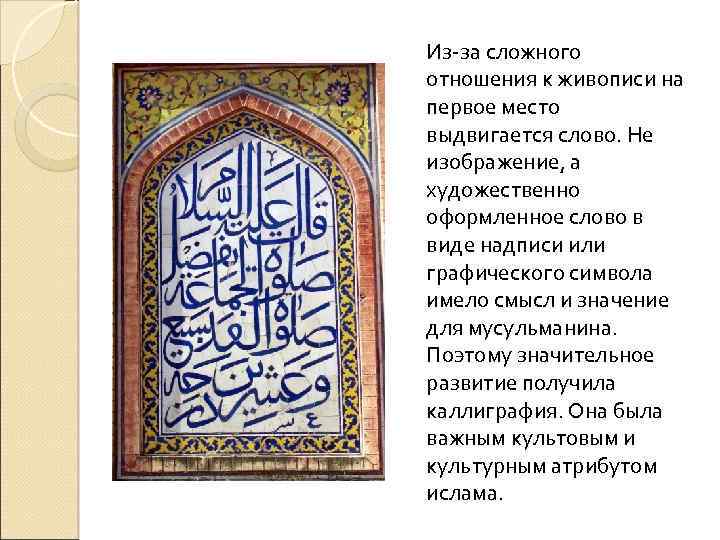 قال عليه السلام
صلوة الجماعة تفضل
صلوة الفذ بسبع
وعشرين درجة
Из-за сложного
отношения к живописи на
первое место
выдвигается слово. Не
изображение, а
художественно
оформленное слово в
виде надписи или
графического символа
имело смысл и значение
для мусульманина.
Поэтому значительное
развитие получила
каллиграфия. Она была
важным культовым и
культурным атрибутом
ислама.